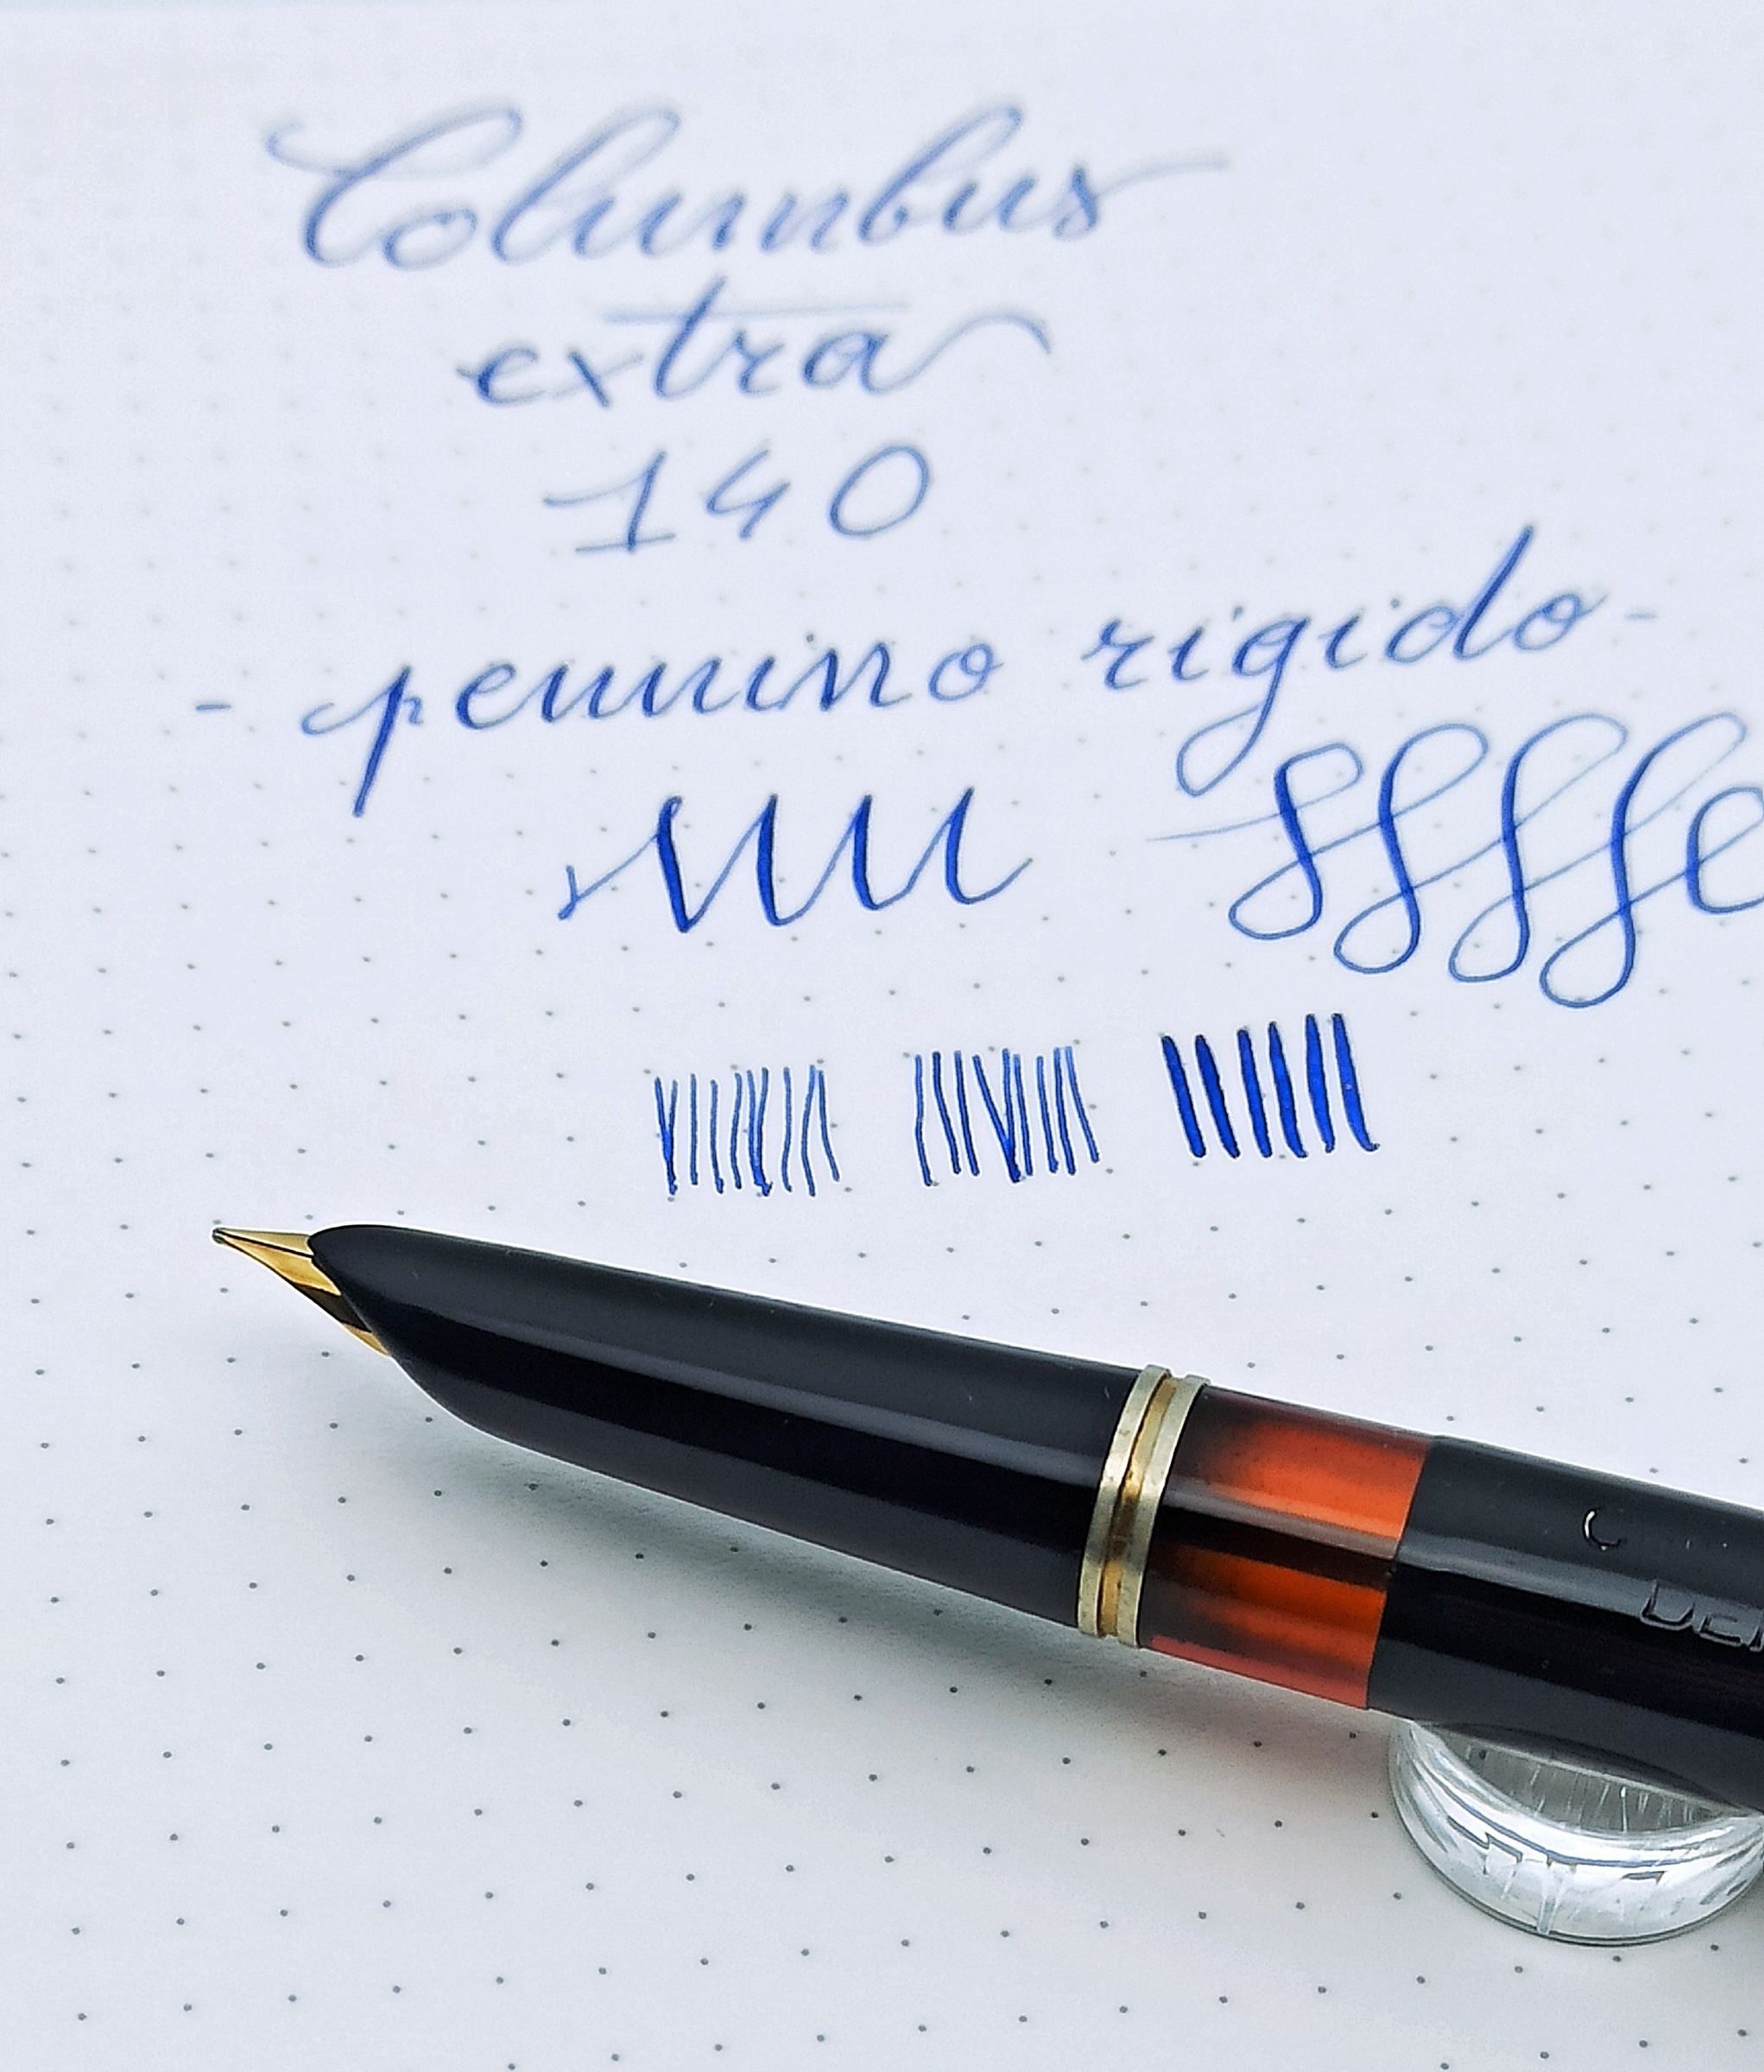 Columbus
extra
140
- pennino rigido -